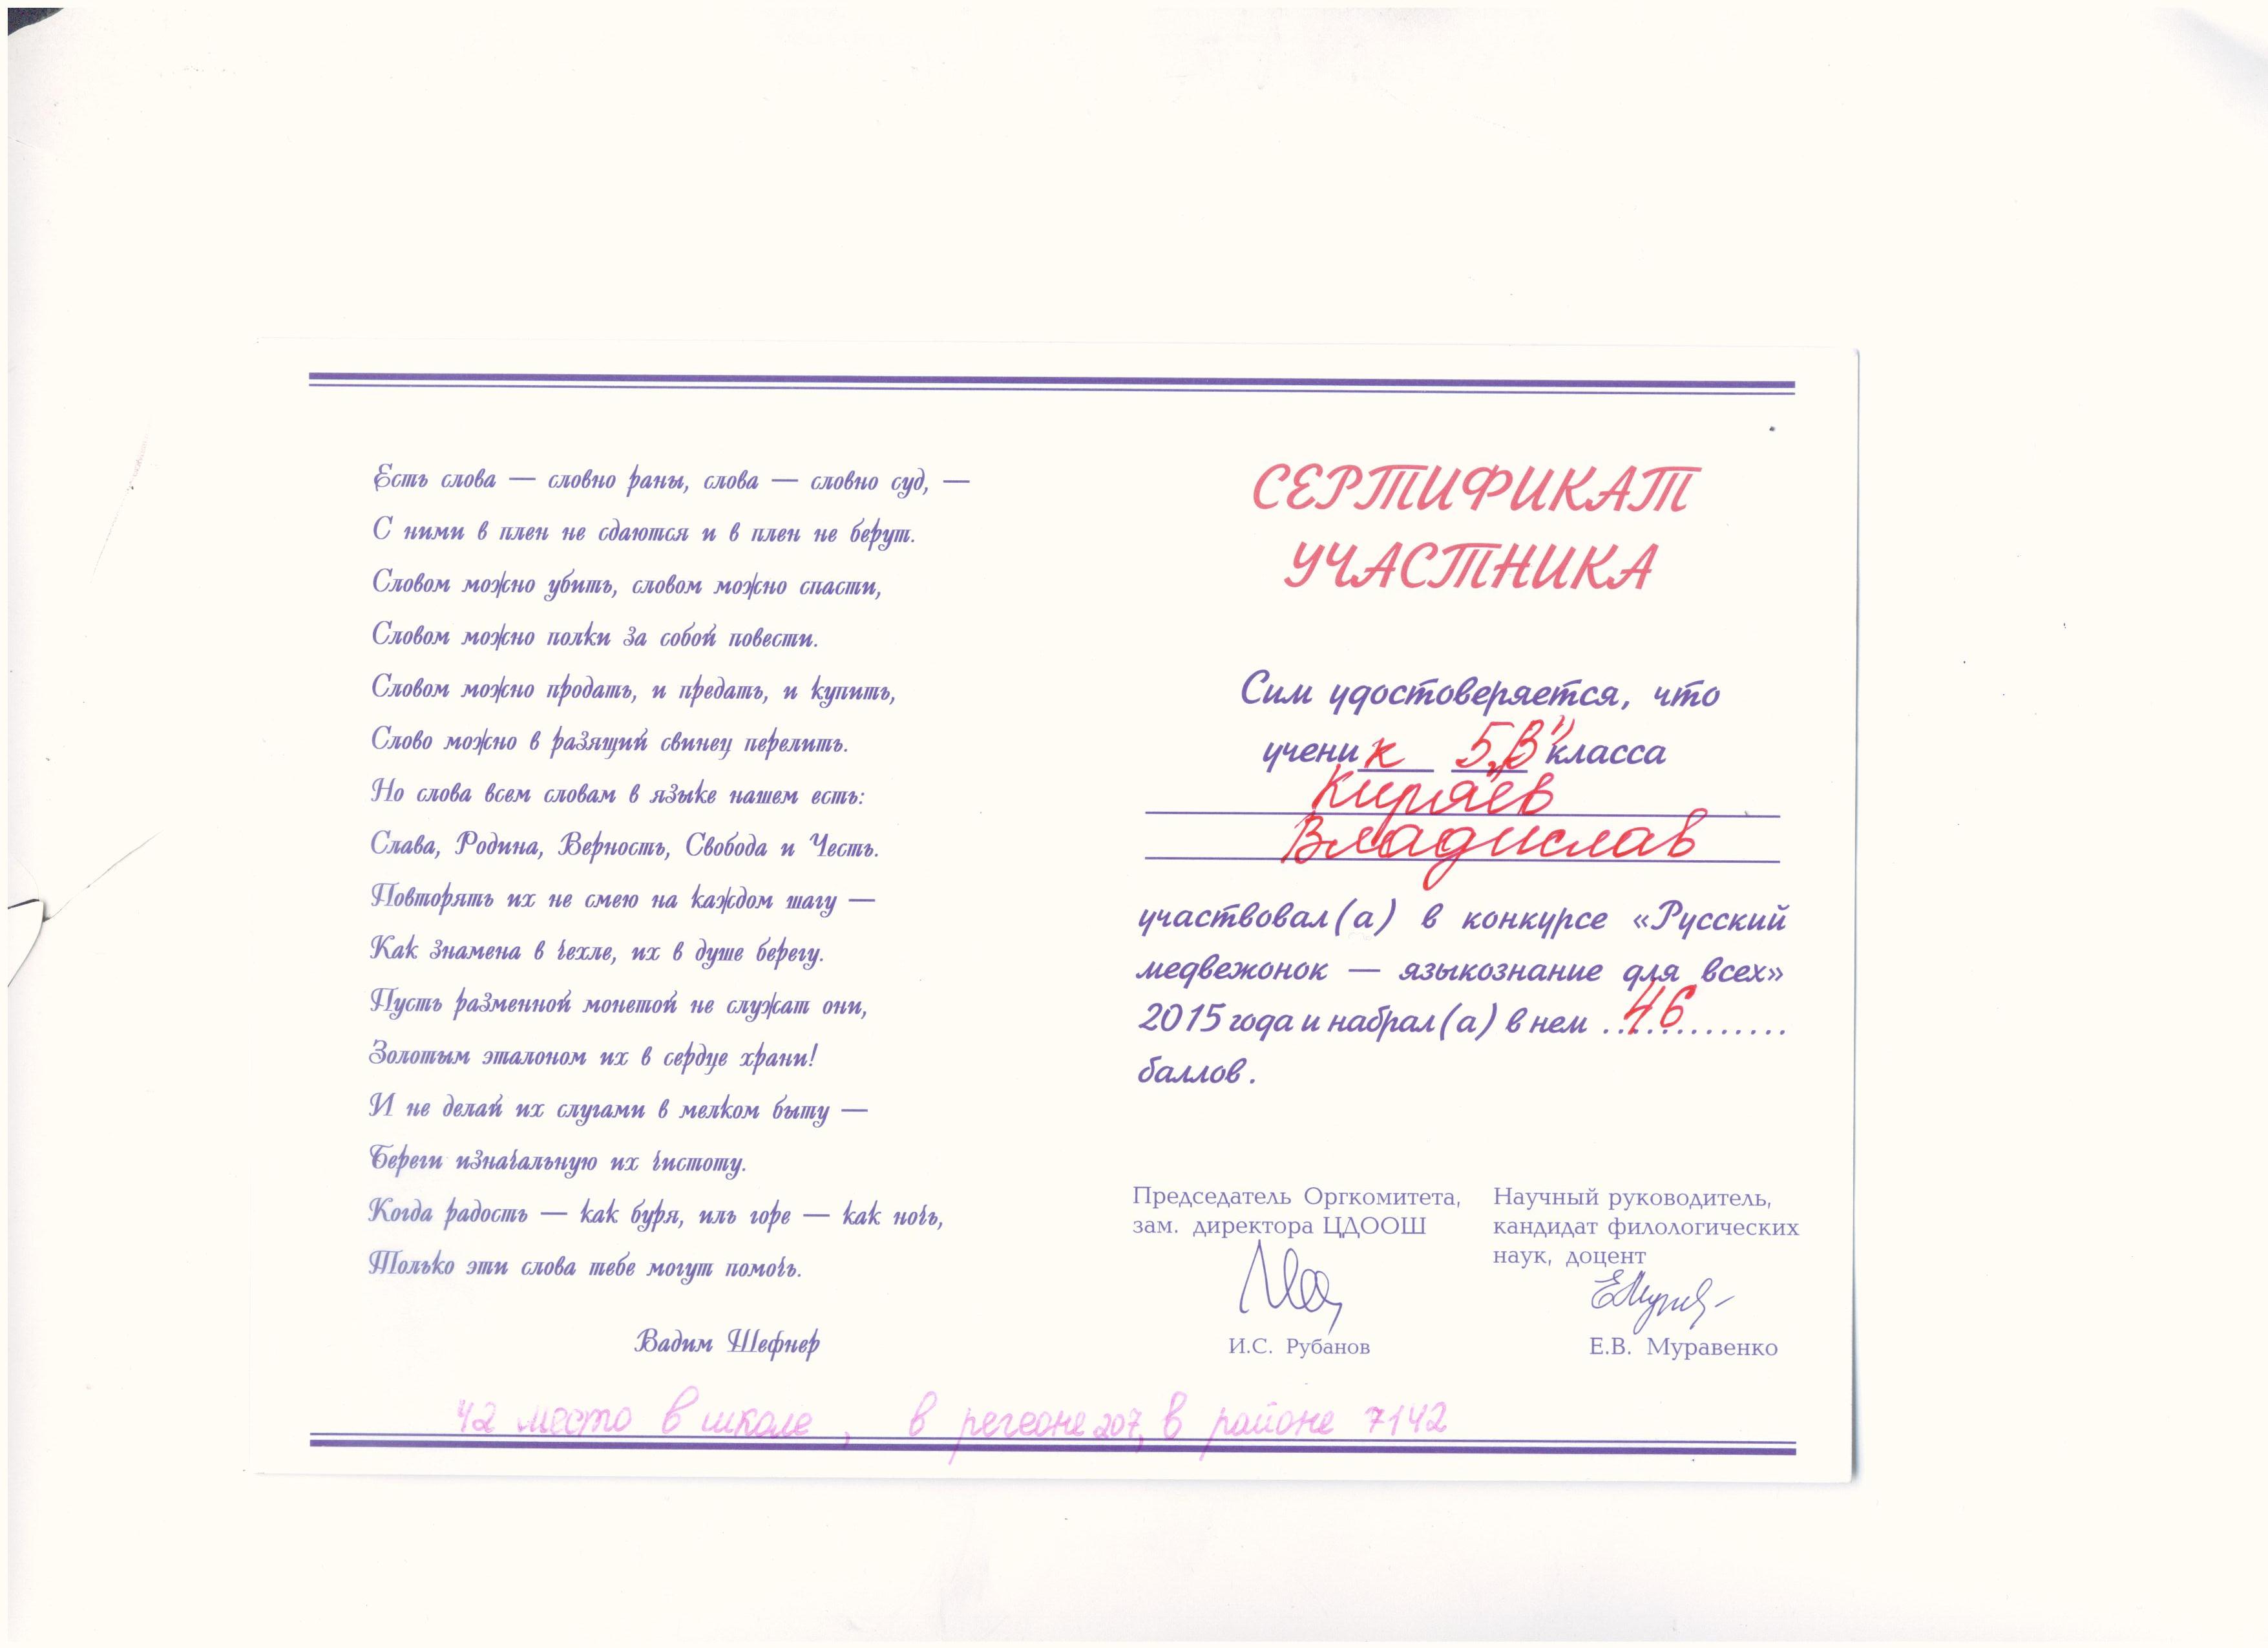 Есть слова — словно раны, слова — словно суд, —
С ними в плен не сдаются и в плен не берут.
Словом можно убить, словом можно спасти,
Словом можно полки за собой повести.
Словом можно продать, и предать, и купить,
Слово можно в разящий свинец перелить.
Но слова всем словам в языке нашем есть:
Слава, Родина, Верность, Свобода и Честь.
Повторять их не смею на каждом шагу —
Как знамена в чехле, их в душе берегу.
Пусть разменной монетой не служат они,
Золотым эталоном их в сердце храни!
И не делай их слугами в мелком быту —
Береги изначальную их чистоту.
Когда радость — как буря, иль горе — как ночь,
Только эти слова тебе могут помочь.
Вадим Шефнер
СЕРТИФИКАТ
УЧАСТНИКА
Сим удостоверяется, что
ученик 5„В" класса
Киряев
Владислав
участвовал(а) в конкурсе «Русский
медвежонок — языкознание для всех»
2015 года и набрал(а) в нем 46
баллов.
Председатель Оргкомитета,
зам. директора ЦДООШ
И.С. Рубанов
Научный руководитель,
кандидат филологических
наук, доцент
Е.В. Муравенко
42 место в школе, в регеоне 207, в районе 7142